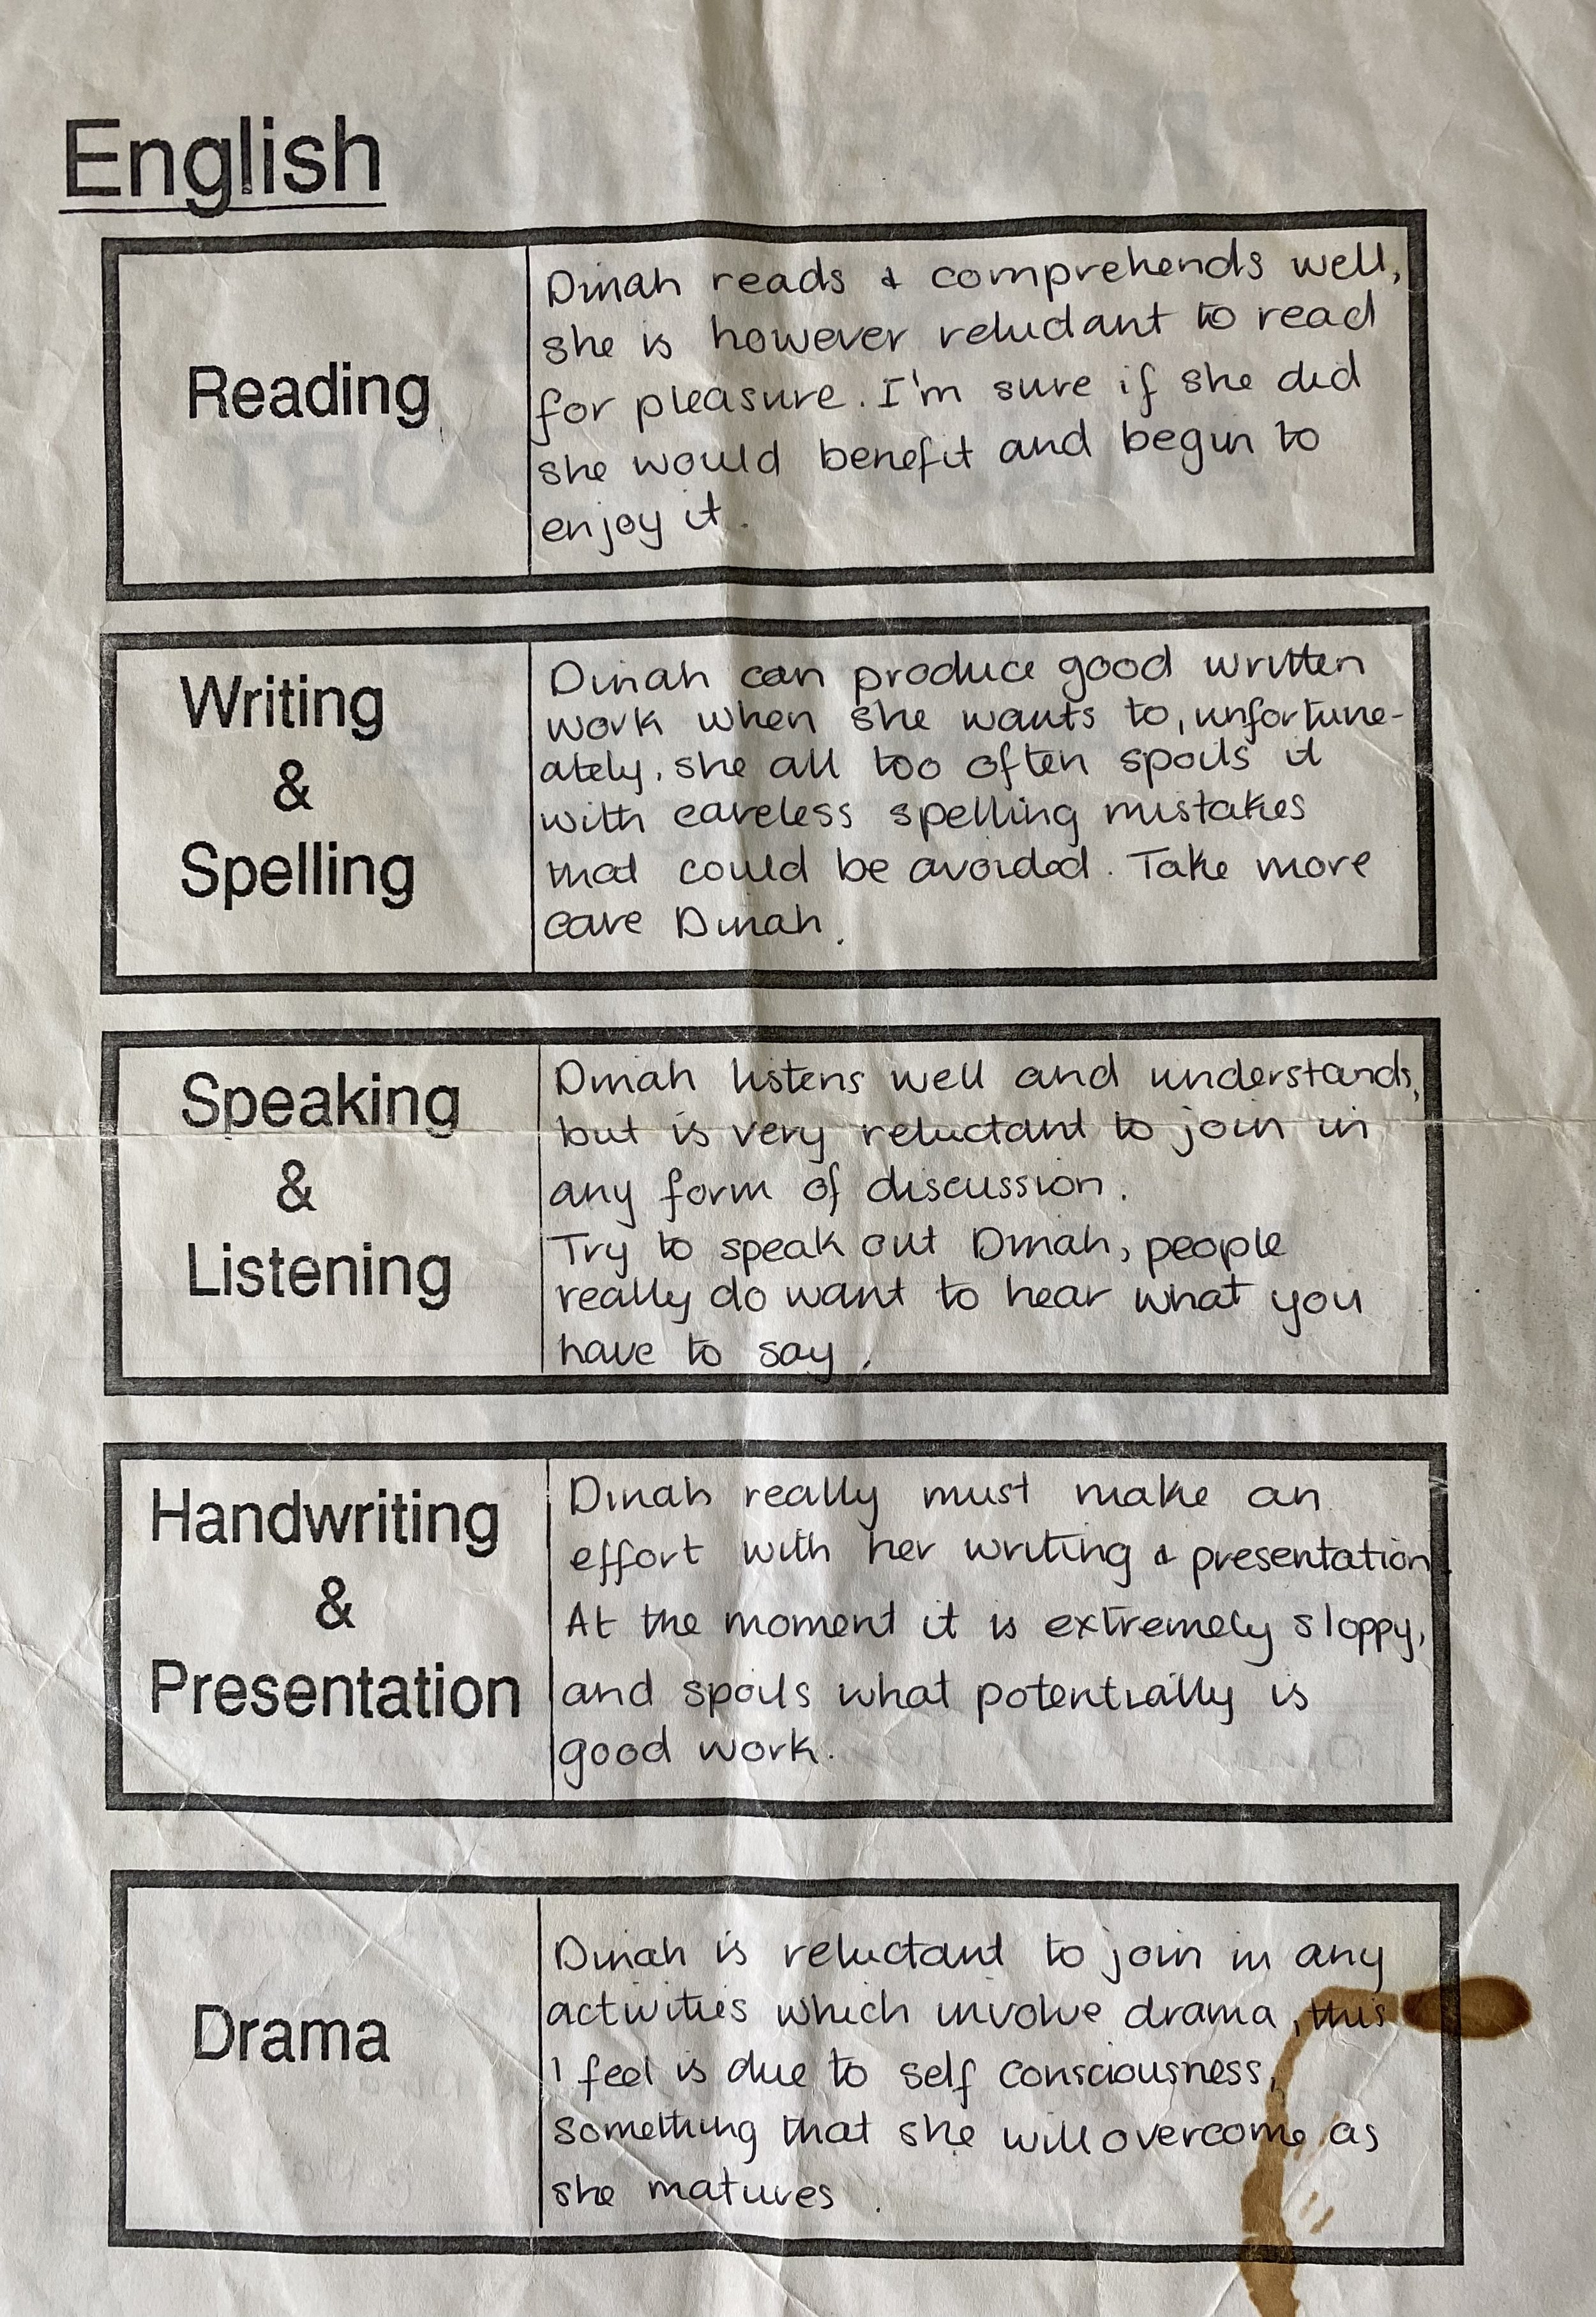 English
Reading
Dinah reads & comprehends well,
she is however reluctant to read
for pleasure. I'm sure if she did
she would benefit and begin to
enjoy it.
Writing
&
Spelling
Dinah can produce good written
work when she wants to, unfortune-
ately, she all too often spoils it
with careless spelling mistakes
that could be avoided. Take more
care Dinah.
Speaking
&
Listening
Dinah listens well and understands,
but is very reluctant to join in
any form of discussion.
Try to speak out Dinah, people
really do want to hear what you
have to say.
Handwriting
&
Presentation
Dinah really must make an
effort with her writing & presentation.
At the moment it is extremely sloppy,
and spoils what potentially is
good work.
Drama
Dinah is reluctant to join in any
activities which involve drama, this
I feel is due to self consciousness,
something that she will overcome as
she matures.